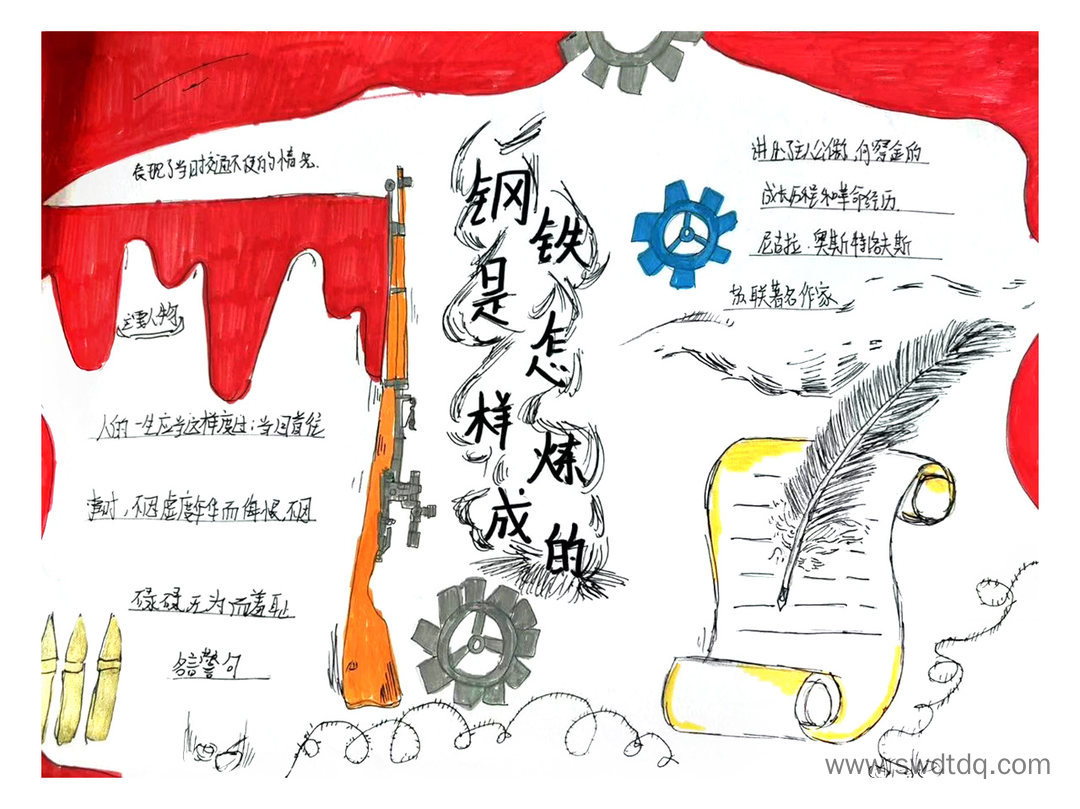 钢铁是怎样炼成的
表现了当时交通不便的情
主要人物
人的一生应当这样度过:当回首往
事时,不因虚度年华而悔恨,不因
碌碌无为而羞耻
名言警句
讲述了主人公 察金的
成长历程和革命经历.
尼古拉·奥斯特洛夫斯
苏联著名作家
www.swdtdq.com